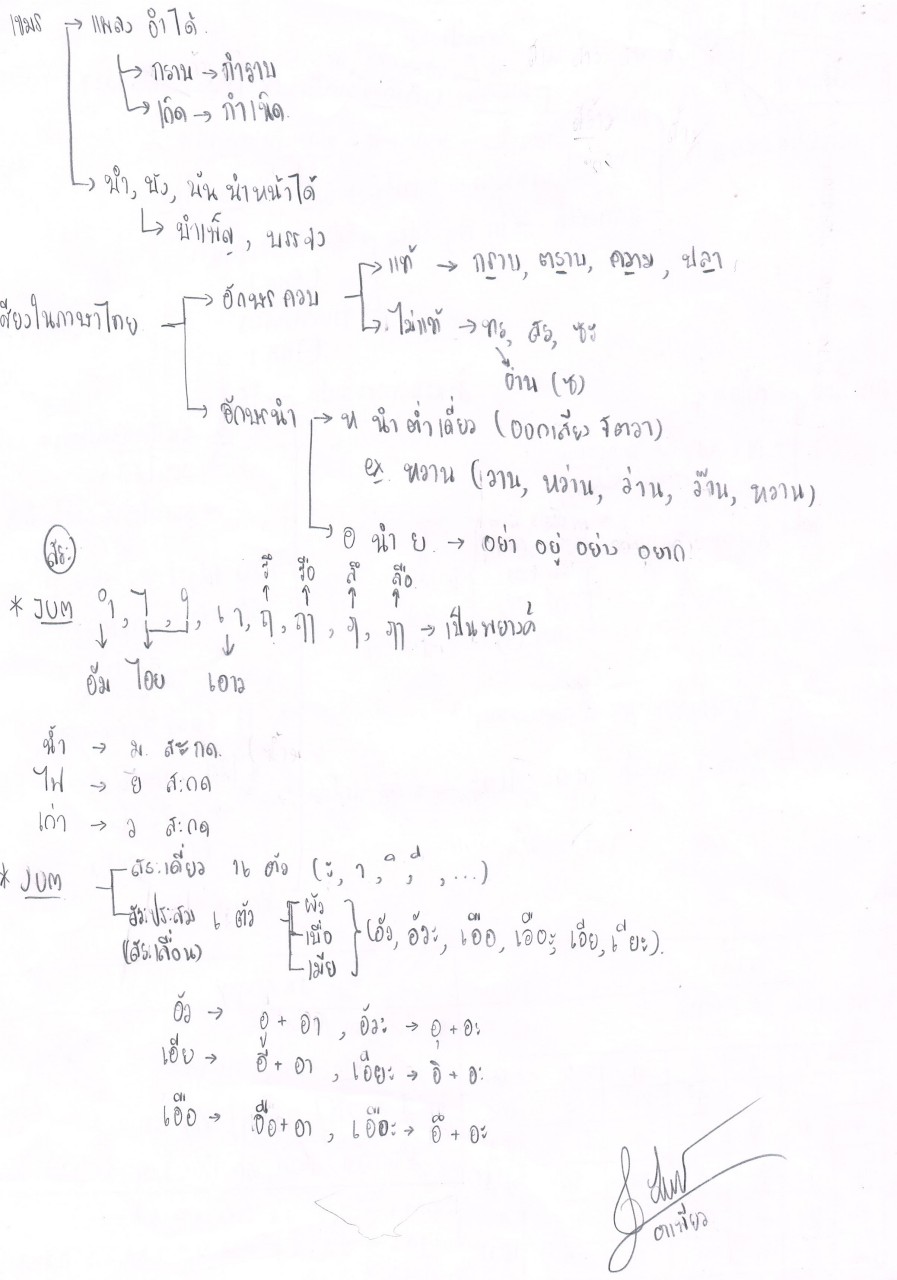 เขมร → แผลง อำ ได้
กราบ → กำราบ
เกิด → กำเนิด
บำ, บัง, บัน นำหน้าได้
บำเพ็ญ, บรรจง
เสียงในภาษาไทย
อักษรควบ
แท้ → กราบ, ตราบ, ความ, ปลา
ไม่แท้ → ทร, สร, ซะ
อ่าน (ซ)
อักษรนำ → ห นำ ต่ำเดี่ยว (ออกเสียง จัตวา)
ex. หวาน (วาน, หว่าน, ว่าน, ว๊าน, หวาน)
อ นำ ย → อย่า อยู่ อย่าง อยาก
สระ
รึ รือ ลึ ลือ
* JUM ำ, ไ, ใ, เา, ฤ, ฤๅ, ฦ, ฦๅ → เป็นพยางค์
อัม ไอย เอาว
น้ำ → ม สะกด
ไฟ → ย สะกด
เก่า → ว สะกด
* JUM
สระเดี่ยว ๑๘ ตัว (ะ, า, ิ, ี, ...)
สระประสม ๖ ตัว
(สระเลื่อน)
ผัว
เบื่อ
เมีย
(อัว, อัวะ, เอือ, เอือะ, เอีย, เอียะ)
อัว → อู + อา, อัวะ → อุ + อะ
เอีย → อี + อา, เอียะ → อิ + อะ
เอือ → อือ + อา, เอือะ → อึ + อะ